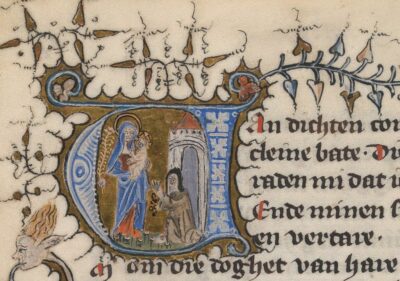 VAn dichten com
cleine bate · Di
raden mi dat i
Ende minen s
en vertare ·
M' om die doghet van hare